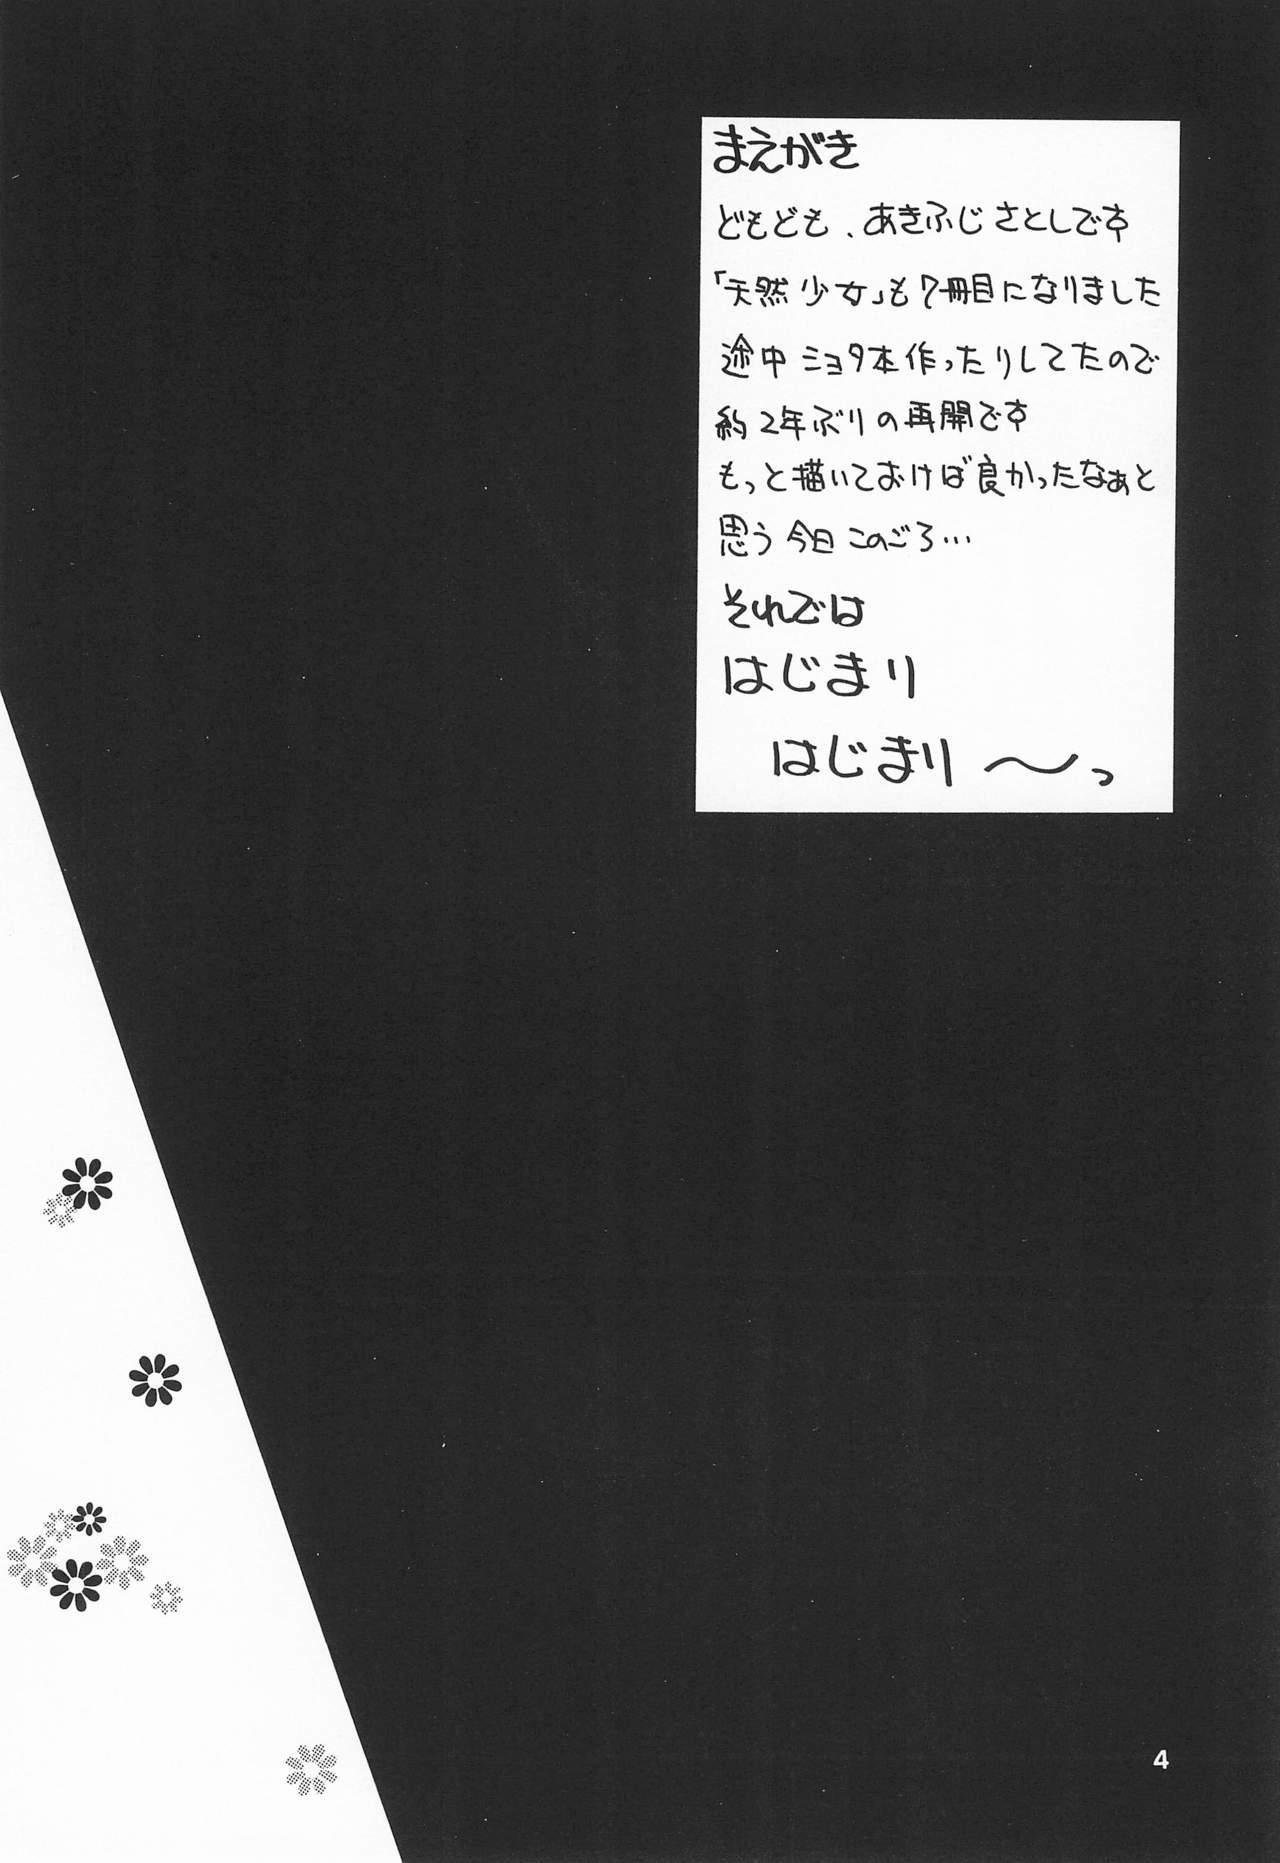 まえがき
どもども、あきふじさとしです
「天然少女」も7冊目になりました
途中ショタ本作ったりしてたので
約2年ぶりの再開です
もっと描いておけば良かったなぁと
思う今日このごろ…
それでは
はじまり
はじまり〜っ
4